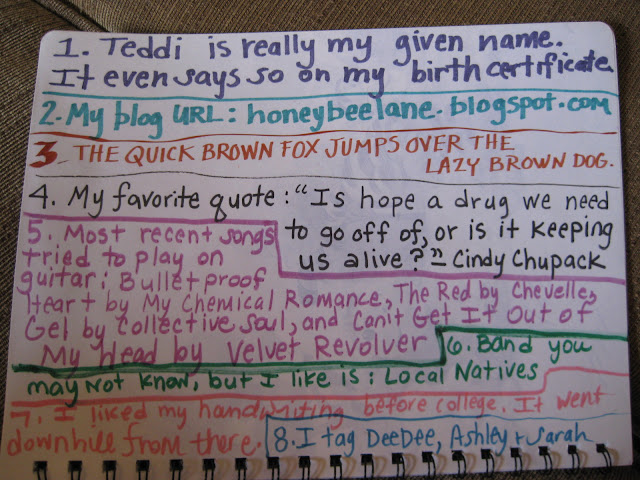 1. Teddi is really my given name.
It even says so on my birth certificate
2. My blog URL: honeybeelane.blogspot.com
3. THE QUICK BROWN FOX JUMPS OVER THE
LAZY BROWN DOG.
4. My favorite quote: "Is hope a drug we need
to go off of, or is it keeping
us alive?" Cindy Chupack
5. Most recent songs
tried to play on
guitar: Bulletproof
Heart by My Chemical Romance, The Red by Chevelle,
Gel by Collective Soul, and Can't Get It Out of
My Head by Velvet Revolver
6. Band you
may not know, but I like is: Local Natives
7. I liked my handwriting before college. It went
downhill from there.
8. I tag DeeDee, Ashley + Sarah